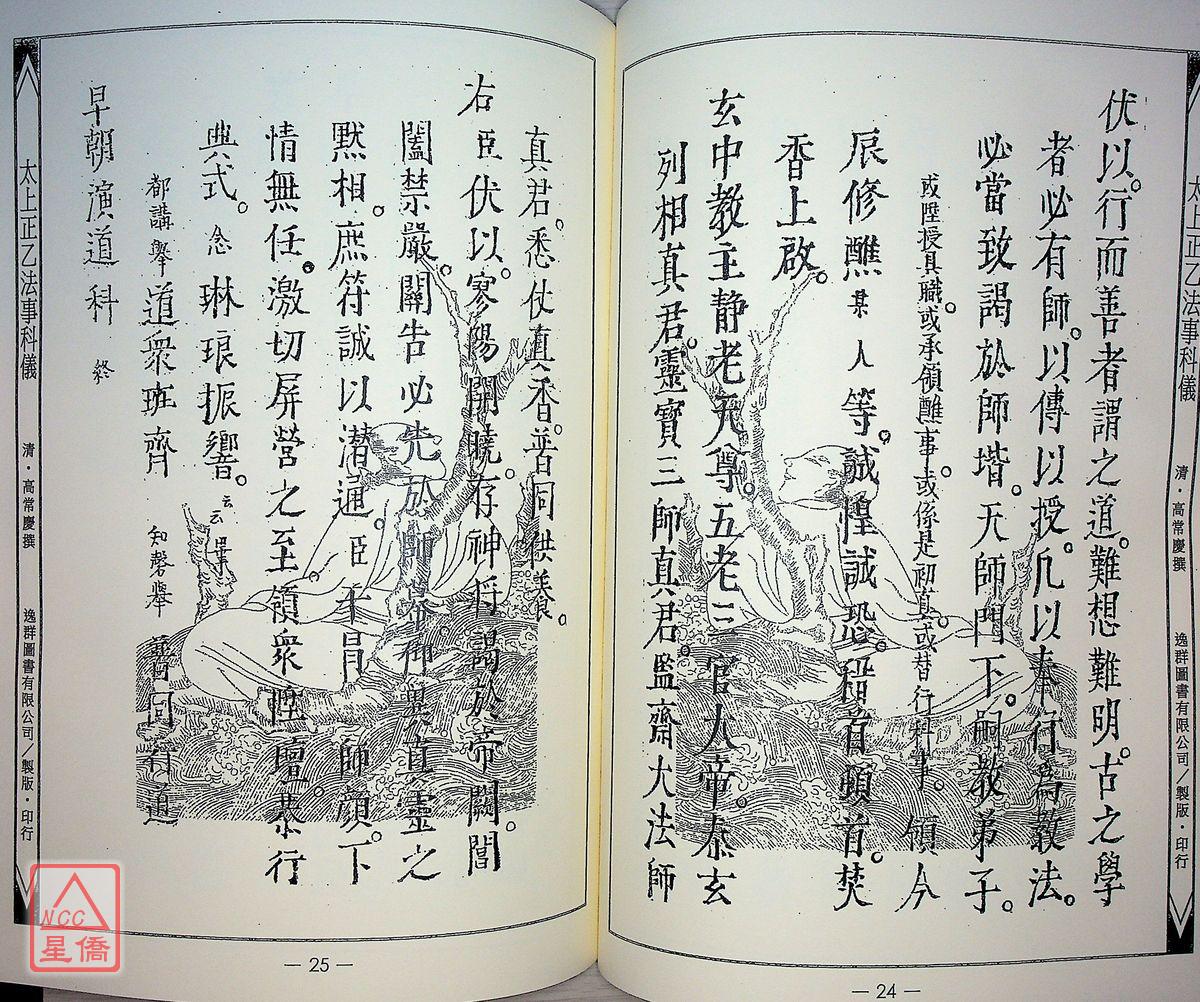 太上正乙法事科儀 清・高常慶撰 逸群圖書有限公司／製版・印行
伏以。行而善者謂之道。難想難明。古之學
者必有師。以傳以授。凡以奉行爲教法。
必當致謁於師堦。天師門下。嗣教弟子。
或陞授具職。或承領醮事。或係是初真。或替行科事。領今
辰修醮某人等。誠惶誠恐。稽首頓首。焚
香上啟。
玄中教主静老天尊。五老三官大帝。泰玄
列相真君。靈寶三師真君。監齋大法師
— 24 —
真君。悉仗真香。普同供養。
右臣伏以。寥陽開曉。存神将謁於帝闕。閶
闔禁嚴。關告必先於師
真靈之
黙相。庶符誠以潜通。臣 師顔。下
情無任。激切屏營之至。領衆陞壇。恭行
典式。念琳琅振響。云云畢
都講舉 道衆班齊 知磬舉 普同行道
早朝演道科 終
太上正乙法事科儀 清・高常慶撰 逸群圖書有限公司／製版・印行
— 25 —
NCC
星僑